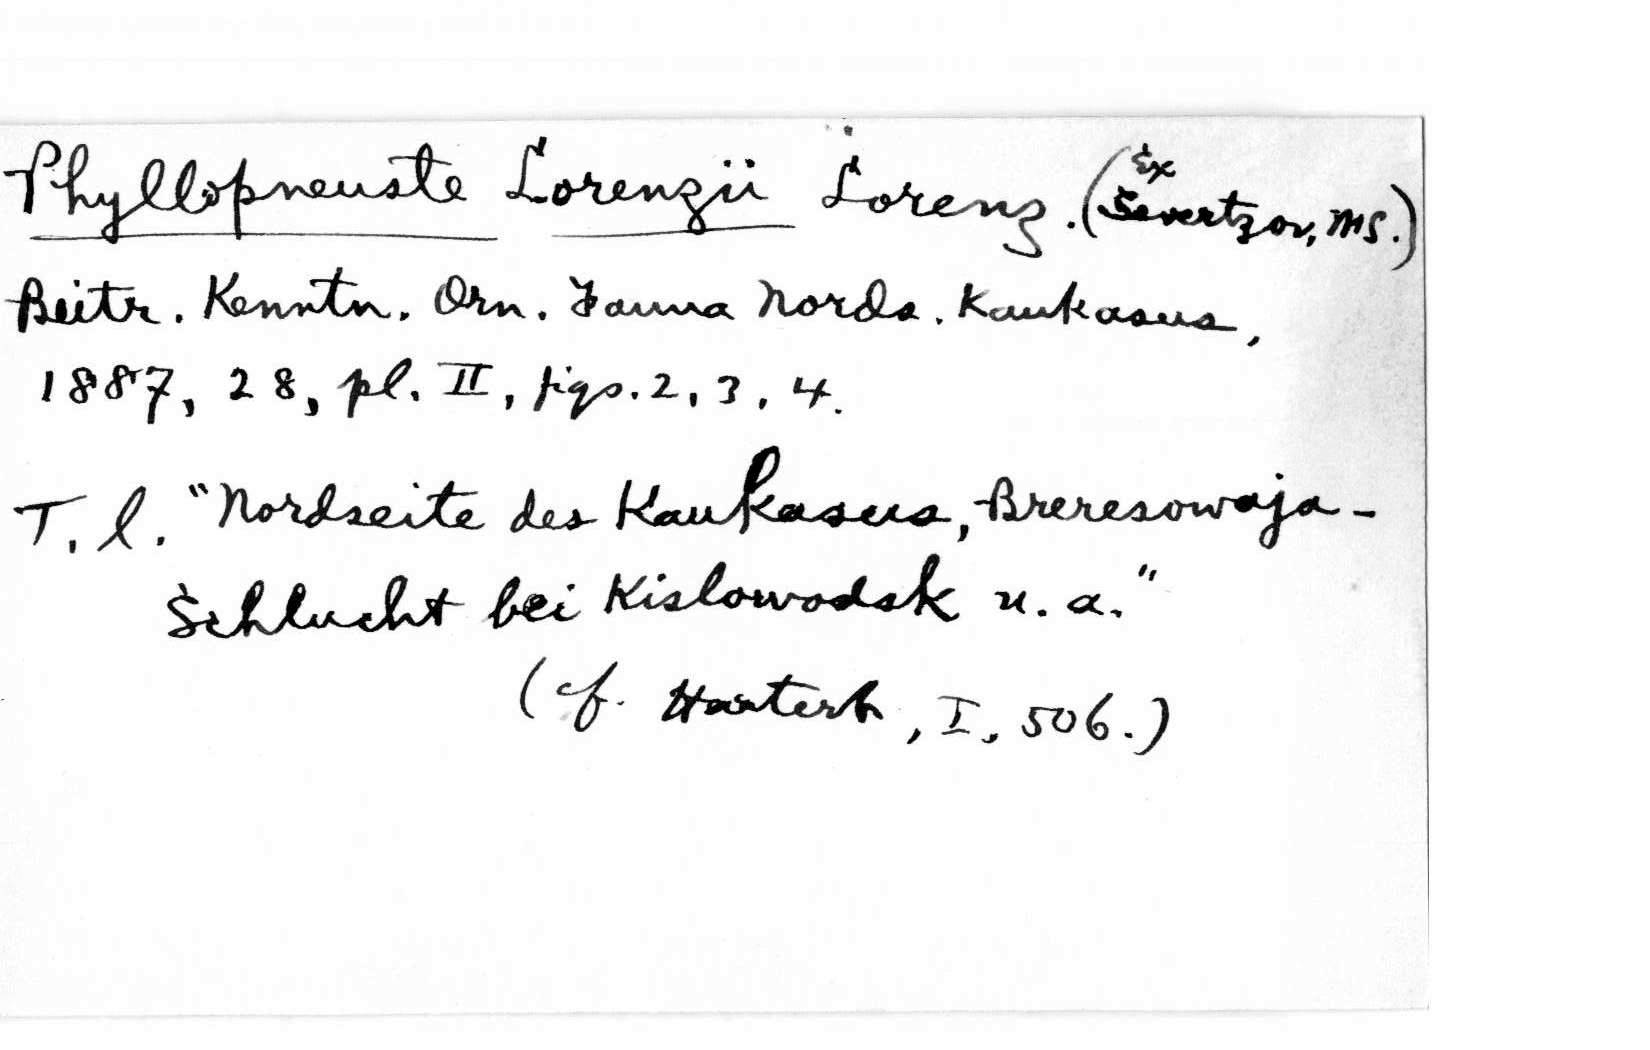 Phyllopneuste Lorenzii Lorenz. (Ex Severtzov, MS.)
Beitr. Kenntn. Orn. Fauna Nords. Kaukasus,
1887, 28, pl. II, figs. 2, 3, 4.
T. l. "Nordseite des Kaukasus, Breresowaja-
Schlucht bei Kislowodsk u. a."
(cf. Hartert, I, 506.)